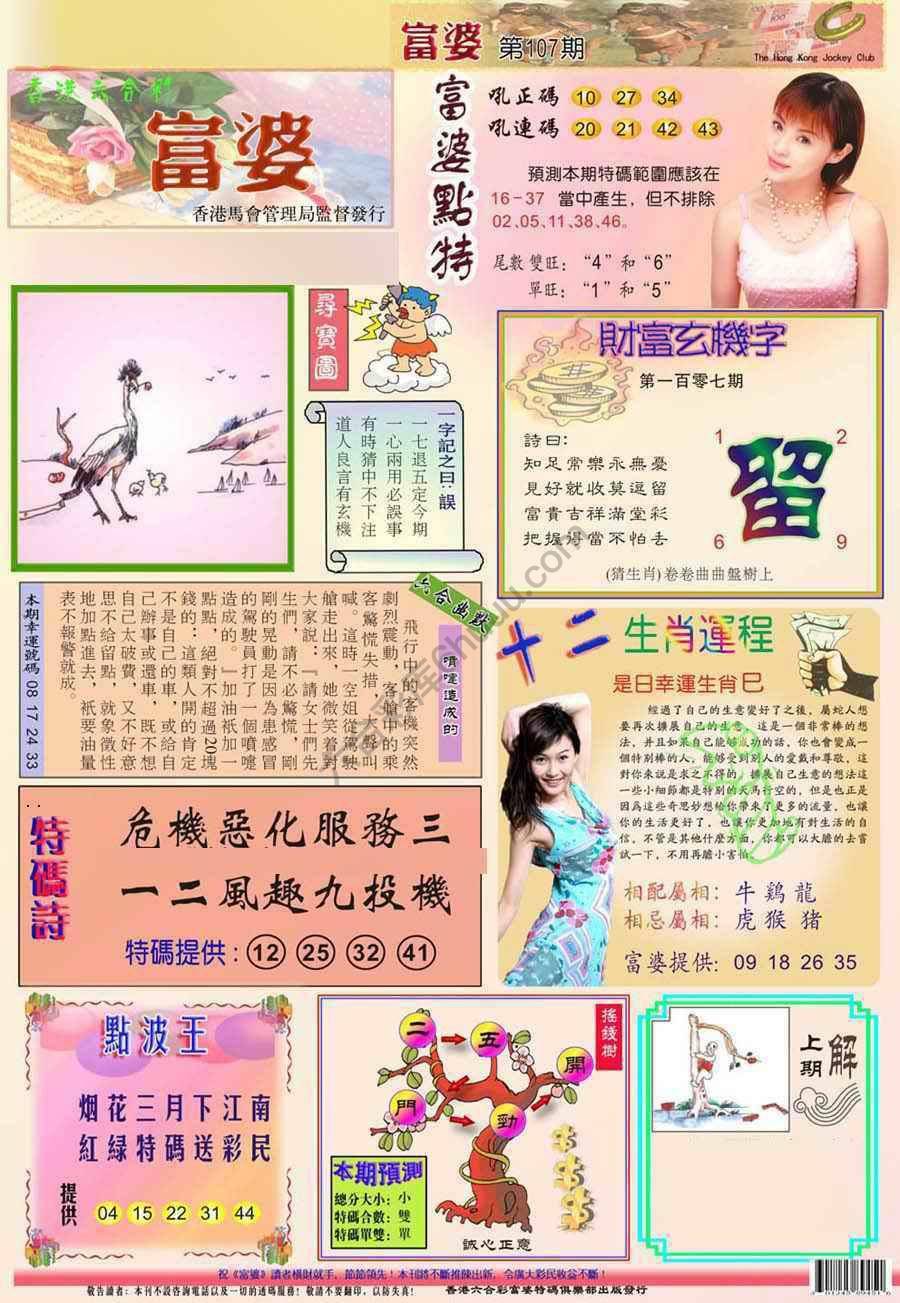 富婆 第107期
The Hong Kong Jockey Club
香港六合彩
富婆
香港馬會管理局監督發行
富婆點特
吼正碼 10 27 34
吼連碼 20 21 42 43
預測本期特碼範圍應該在
16-37 當中產生，但不排除
02、05、11、38、46。
尾數雙旺：“4”和“6”
單旺：“1”和“5”
尋寶圖
一字記之曰：誤
一七退五定今期
一心兩用必誤事
有時猜中不下注
道人良言有玄機
財富玄機字
第一百零七期
詩曰：
知足常樂永無憂
見好就收莫逗留
富貴吉祥滿堂彩
把握得當不怕丟
1 2
留
6 9
(猜生肖)卷卷曲曲盤樹上
六合幽默
噴嚏造成的
飛行中的客機突然
劇烈震動，客艙中的乘
客驚慌失措，一片驚叫
喊。這時一空姐從駕駛
艙走出來，她微笑着對
大家說：『請女士們先
生們，請不必驚慌，剛
剛的晃動是因為患感冒
的駕駛員打了一個噴嚏
造成的。』加油祇加一
點點，絕對不超過20塊
錢的：這類人開的肯定
不是自己的車，或給自
己辦事或還車，既不想
自己太破費，又不好意
思不給留點，就象徵性
地加點進去，祇要油量
表不報警就成。
本期幸運號碼 08 17 24 33
十二生肖運程
是日幸運生肖巳
經過了自己的生意變好了之後，屬蛇人想
要再次擴展自己的生意，這是一個非常棒的想
法，并且如果自己能够成功的話，你也會變成一
個特別棒的人，能够受到別人的愛戴和尊敬，這
對你來說是求之不得的，擴展自己生意的想法這
一些小細節都是特別的天馬行空的，但是也正是
因爲這些奇思妙想給你帶來了更多的流量，也讓
你的生活更好了，也讓你更加地有對生活的自
信，不管是其他什麽方面，你都可以大膽的去嘗
試一下，不用再膽小害怕。
相配屬相：牛 鷄 龍
相忌屬相：虎 猴 猪
富婆提供：09 18 26 35
特碼詩
危機惡化服務三
一二風趣九投機
特碼提供：12 25 32 41
點波王
烟花三月下江南
紅緑特碼送彩民
提供 04 15 22 31 44
搖錢樹
二 五
開
門
勁
本期預測
總分大小：小
特碼合數：雙
特碼單雙：單
誠心正意
上期解
祝《富婆》讀者橫財就手，節節領先！本刊將不斷推陳出新，令廣大彩民收益不斷！
敬告讀者：本刊不設咨詢電話以及一切的透碼服務！敬請不要翻印，以防失真！ 香港六合彩富婆特碼俱樂部出版發行